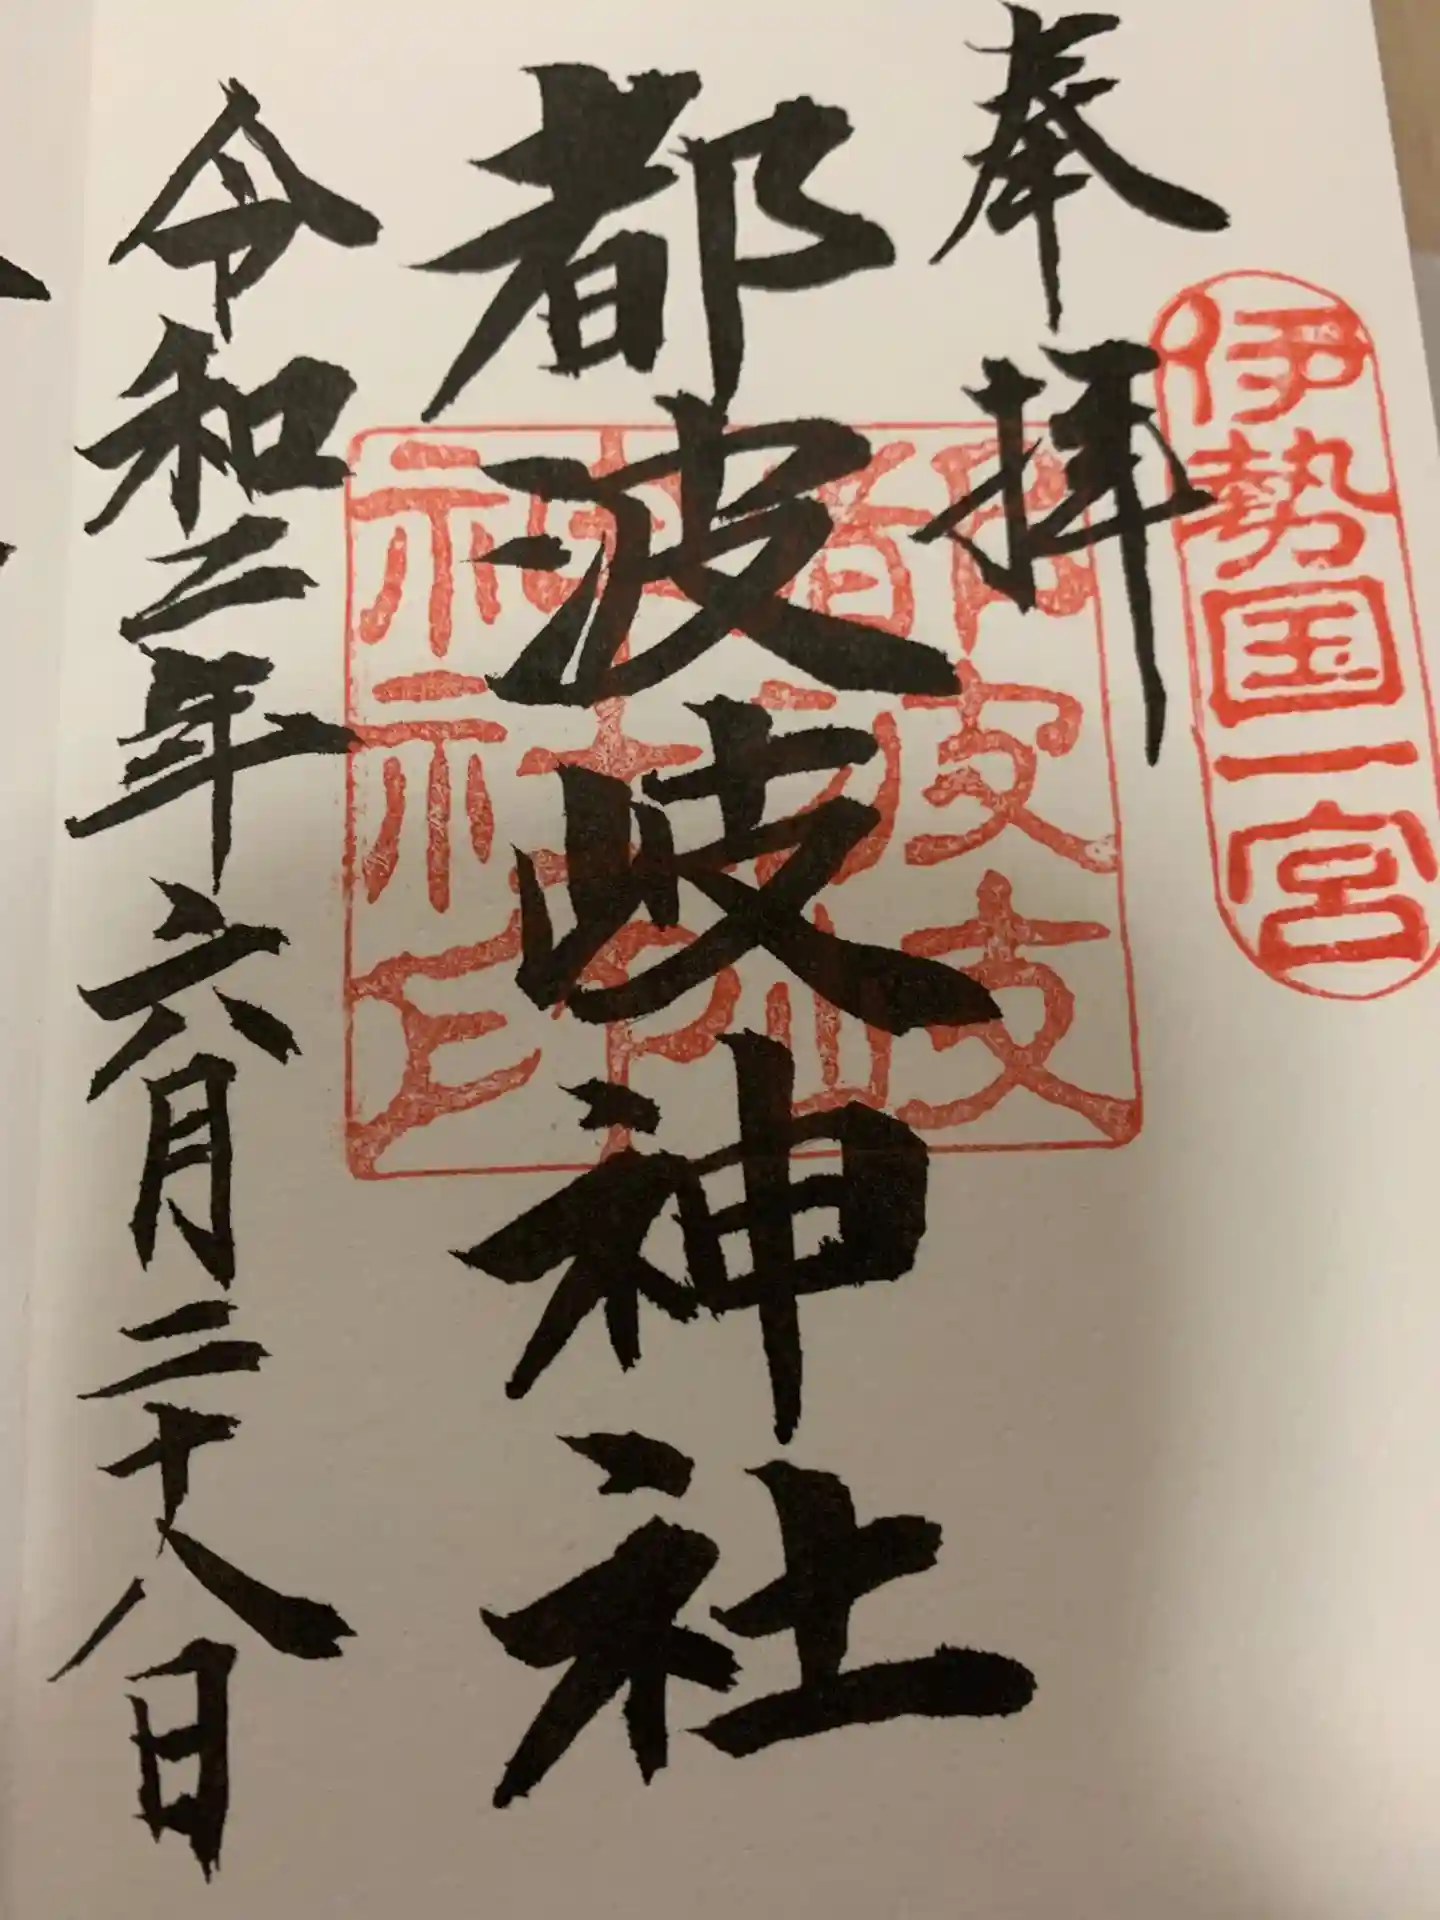 奉拝
伊勢国一宮
都波岐神社
都波岐神社印
令和二年六月二十八日